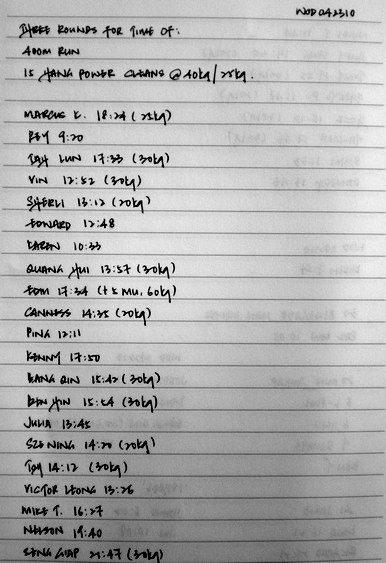 WOD 042310
THREE ROUNDS FOR TIME OF:
400M RUN
15 HANG POWER CLEANS @ 40kg/25kg.
MARCUS K. 18:24 (25kg)
REY 9:20
TAH LUN 17:33 (30kg)
VIN 12:52 (30kg)
SHERLI 13:12 (20kg)
EDWARD 12:48
KAREN 10:33
QUANG HUI 13:57 (30kg)
EDM 17:34 (+5 MU, 60kg)
CANNESS 14:35 (20kg)
PING 12:11
KENNY 17:50
BANG QIN 15:42 (30kg)
BEN YIN 15:54 (30kg)
JULIA 13:45
SZE NING 14:20 (20kg)
TAY 14:12 (30kg)
VICTOR LEONG 13:26
MIKE T. 16:27
NELSON 19:40
SENG GIAP 21:47 (30kg)